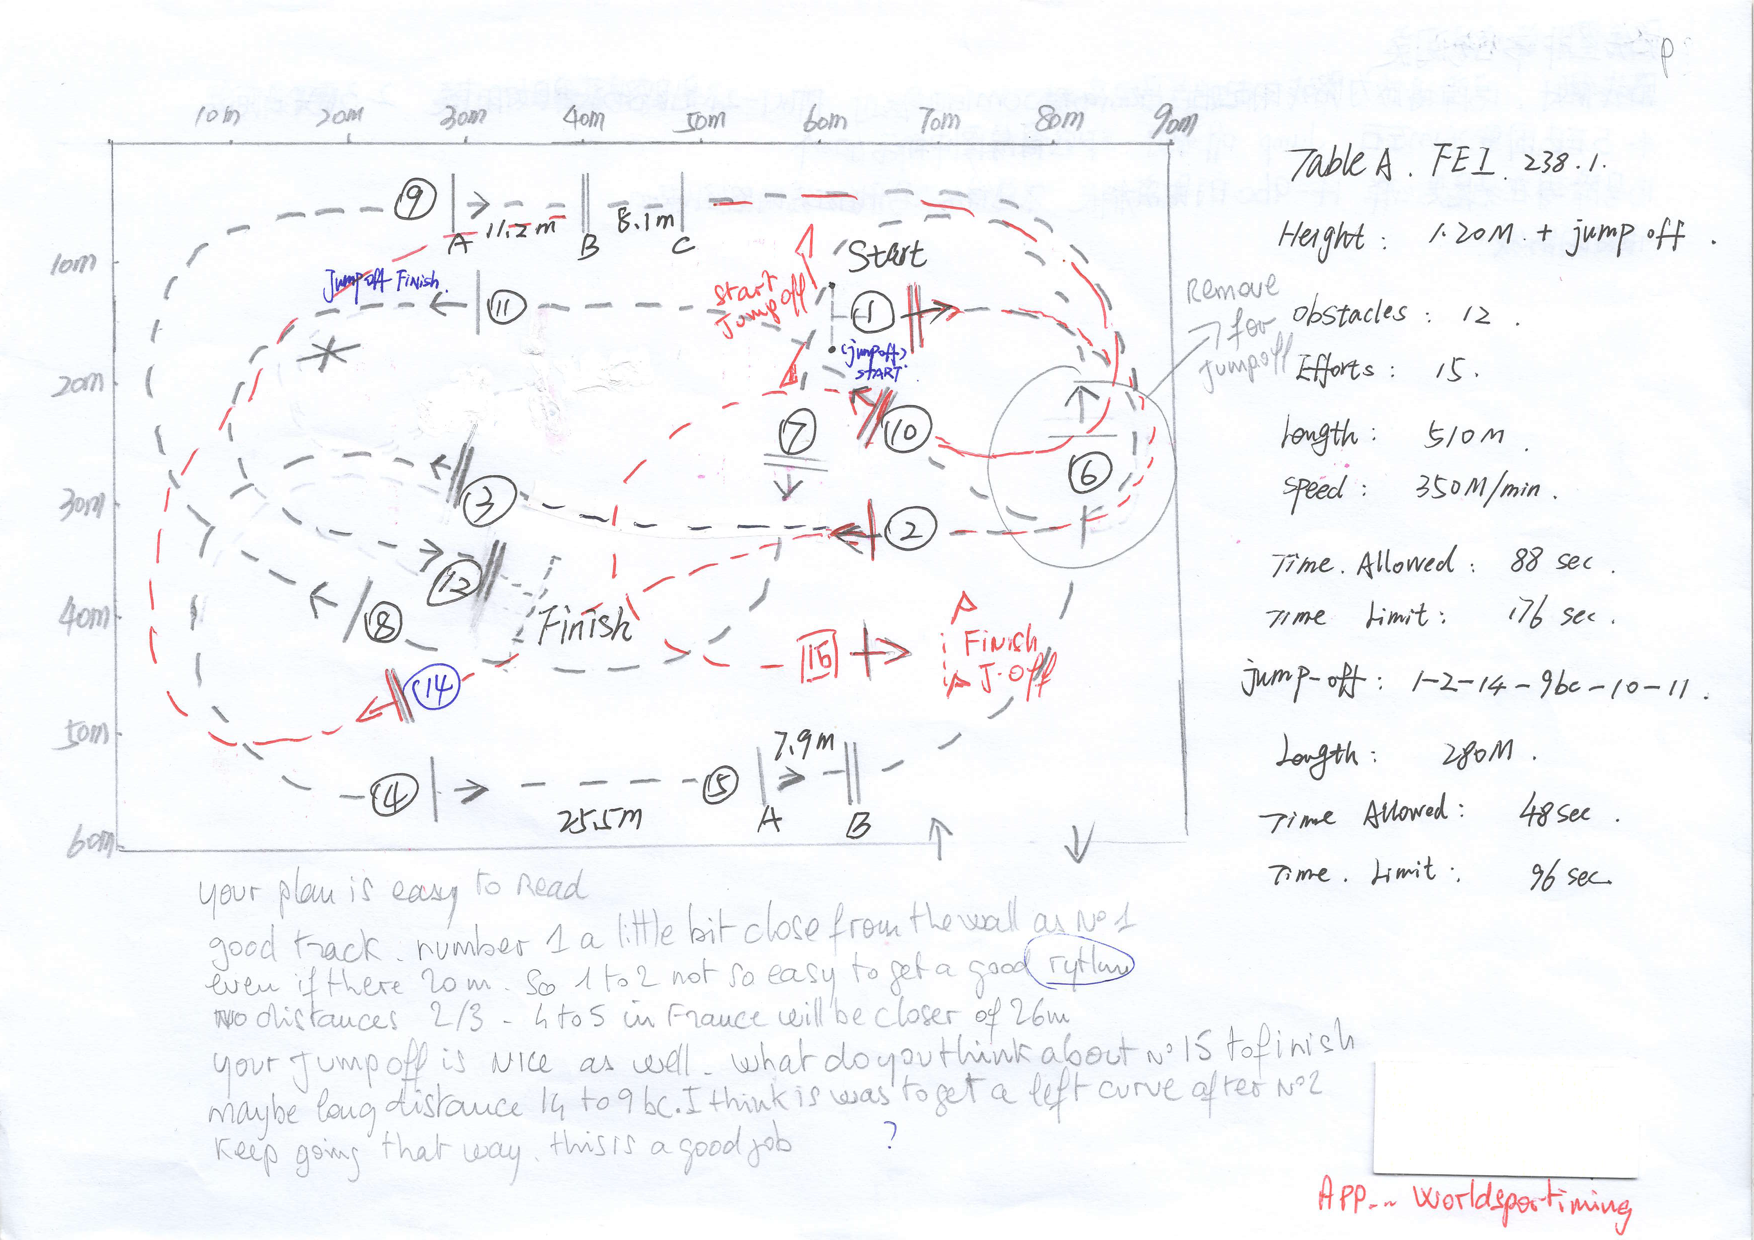 10m 20m 30m 40m 50m 60m 70m 80m 90m
10m
20m
30m
40m
50m
60m
9
A 11.2m B 8.1m C
Start
Jump off Finish.
11
Start
Jump off
1
(jump off)
START.
Remove
for
jumpoff
7
10
6
3
2
12
8
Finish
15
Finish
J-off
14
7.9m
4
25.5m
5
A B
Table A. FEI. 238.1.
Height: 1.20M + jump off.
obstacles: 12.
Efforts: 15.
length: 510M.
speed: 350M/min.
Time. Allowed: 88 sec.
Time Limit: 176 sec.
jump-off: 1-2-14-9bc-10-11.
Length: 280M.
Time Allowed: 48 sec.
Time. Limit: 96 sec.
your plan is easy to Read
good track. number 1 a little bit close from the wall as N°1
even if there 20m. So 1 to 2 not so easy to get a good rytlm
distances 2/3 - 4 to 5 in France will be closer of 26m
your jump off is nice as well. what do you think about N°15 to finish
maybe long distance 14 to 9bc. I think is was to get a left curve after N°2
Keep going that way. this is a good job ?
APP... Worldsportiming